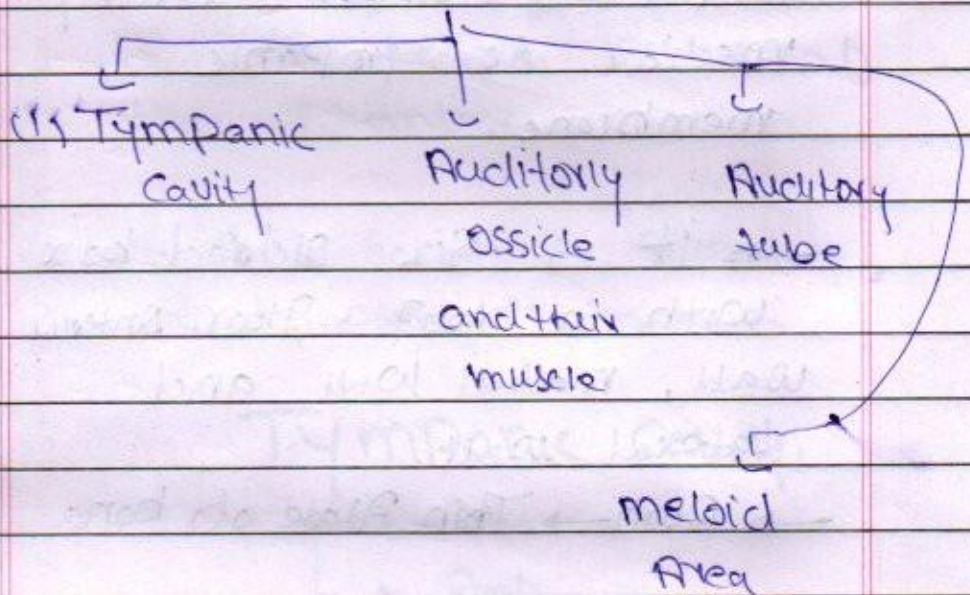 (1) Tympanic
Cavity
Auditoriy
ossicle
and their
muscle
Auditory
tube
meloid
Area